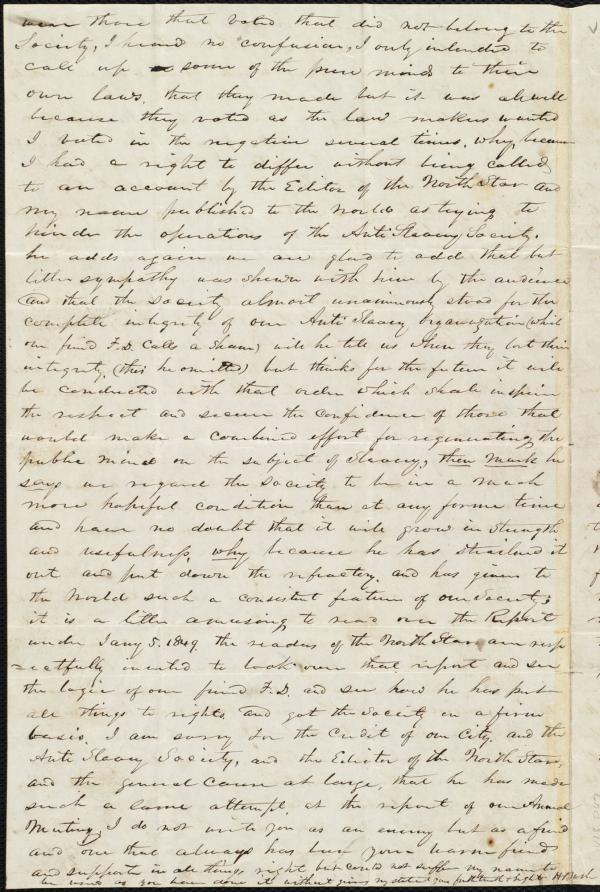 were those that voted that did not belong to the
Society, I heard no confusion, I only intended to
call up some of the pure minds to their
own laws, that they made but it was all well
because they voted as the law makers wanted
I voted in the negative several times, why, because
I had a right to differ without being called
to an account by the Editor of the North Star and
my name published to the world as trying to
hinder the operations of the Anti Slavery Society.
he adds again we are glad to add that but
little sympathy was shewn with him by the audience
and that the Society almost unanimously stood for the
complete integrity of our Anti Slavery organization (which
our friend F.D. calls a sham) will he tell us when they lost their
integrity, (this he omitted) but thinks for the future it will
be conducted with that order which shall inspire
the respect and secure the confidence of those that
would make a combined effort for regenerating the
public mind on the subject of Slavery, then mark he
says we regard the Society to be in a much
more hopeful condition than at any former time
and have no doubt that it will grow in strength
and usefulness, why because he has
out and put down the refractory, and has given to
the World such a consistent feature of our Society;
it is a little amusing to read over the Report
under Jany 5. 1849 the readers of the North Star are resp
=ectfully invited to look over that report and see
the logic of our friend F.D. and see how he has put
all things to rights and got the Society on a firm
basis. I am sorry for the credit of our City, and the
Anti Slavery Society, and the Editor of the North Star,
and the general Cause at large, that he has made
such a lame attempt at the report of our Annual
Meeting, I do not write you as an enemy but as a friend
and one that always has been your warm friend
and supporter in all things right but could not suffer my name to
be used as you have done it without giving my statement and putting things right